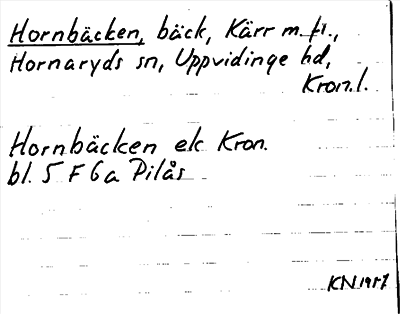 Hornbäcken, bäck, Kärr m.fl.,
Hornaryds sn, Uppvidinge hd,
Kron.l.
Hornbäcken ek Kron.
bl. 5 F 6 a Pilås
KN 1957